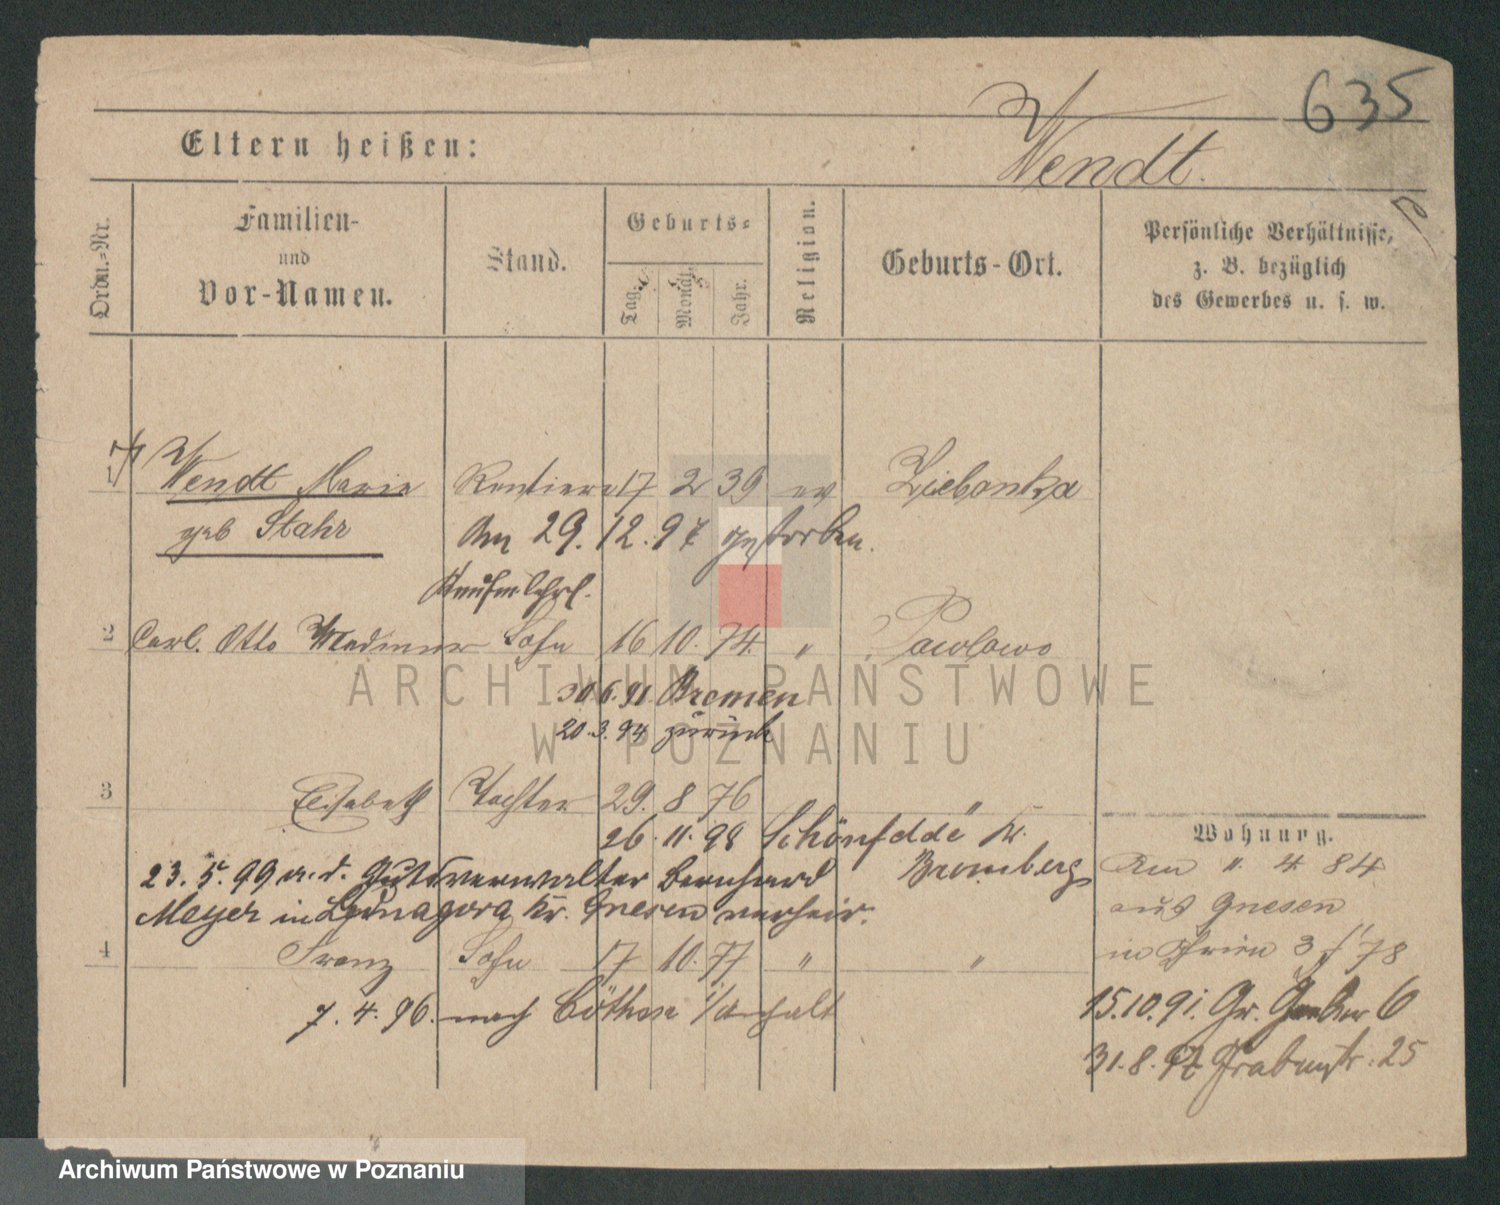 635
Wendt.
Eltern heißen:
Ordn.-Nr.
Familien-
und
Vor-Namen.
Stand.
Geburts-
Tag.
Monat.
Jahr.
Religion.
Geburts-Ort.
Persönliche Verhältnisse,
z. B. bezüglich
des Gewerbes u. s. w.
1 Wendt Marie Rentiere 17 2 39 ev Ziebonka
geb Stahr Am 29. 12. 97 gestorben.
Kaufm. Lehrl.
2 Carl. Otto Sohn 16 10. 74. " Pawlowo
30 6. 91. Bremen
20. 3. 94 zurück
3 Elisabeth Tochter 29. 8 76 "
26. 11. 98 Kr.
Bromberg
23. 5. 99 a. d. Gutsverwalter Bernhard
Meyer in Kr. Gnesen verheir.
4 Franz Sohn 17 10. 77 " "
7. 4. 96. nach Cöthen i/Anhalt
Wohnung.
Am 4 84
aus Gnesen
in 3 78
15. 10. 91. Gr. 6
31. 8. 97 Grabenstr. 25
ARCHIWUM PAŃSTWOWE
W POZNANIU
Archiwum Państwowe w Poznaniu